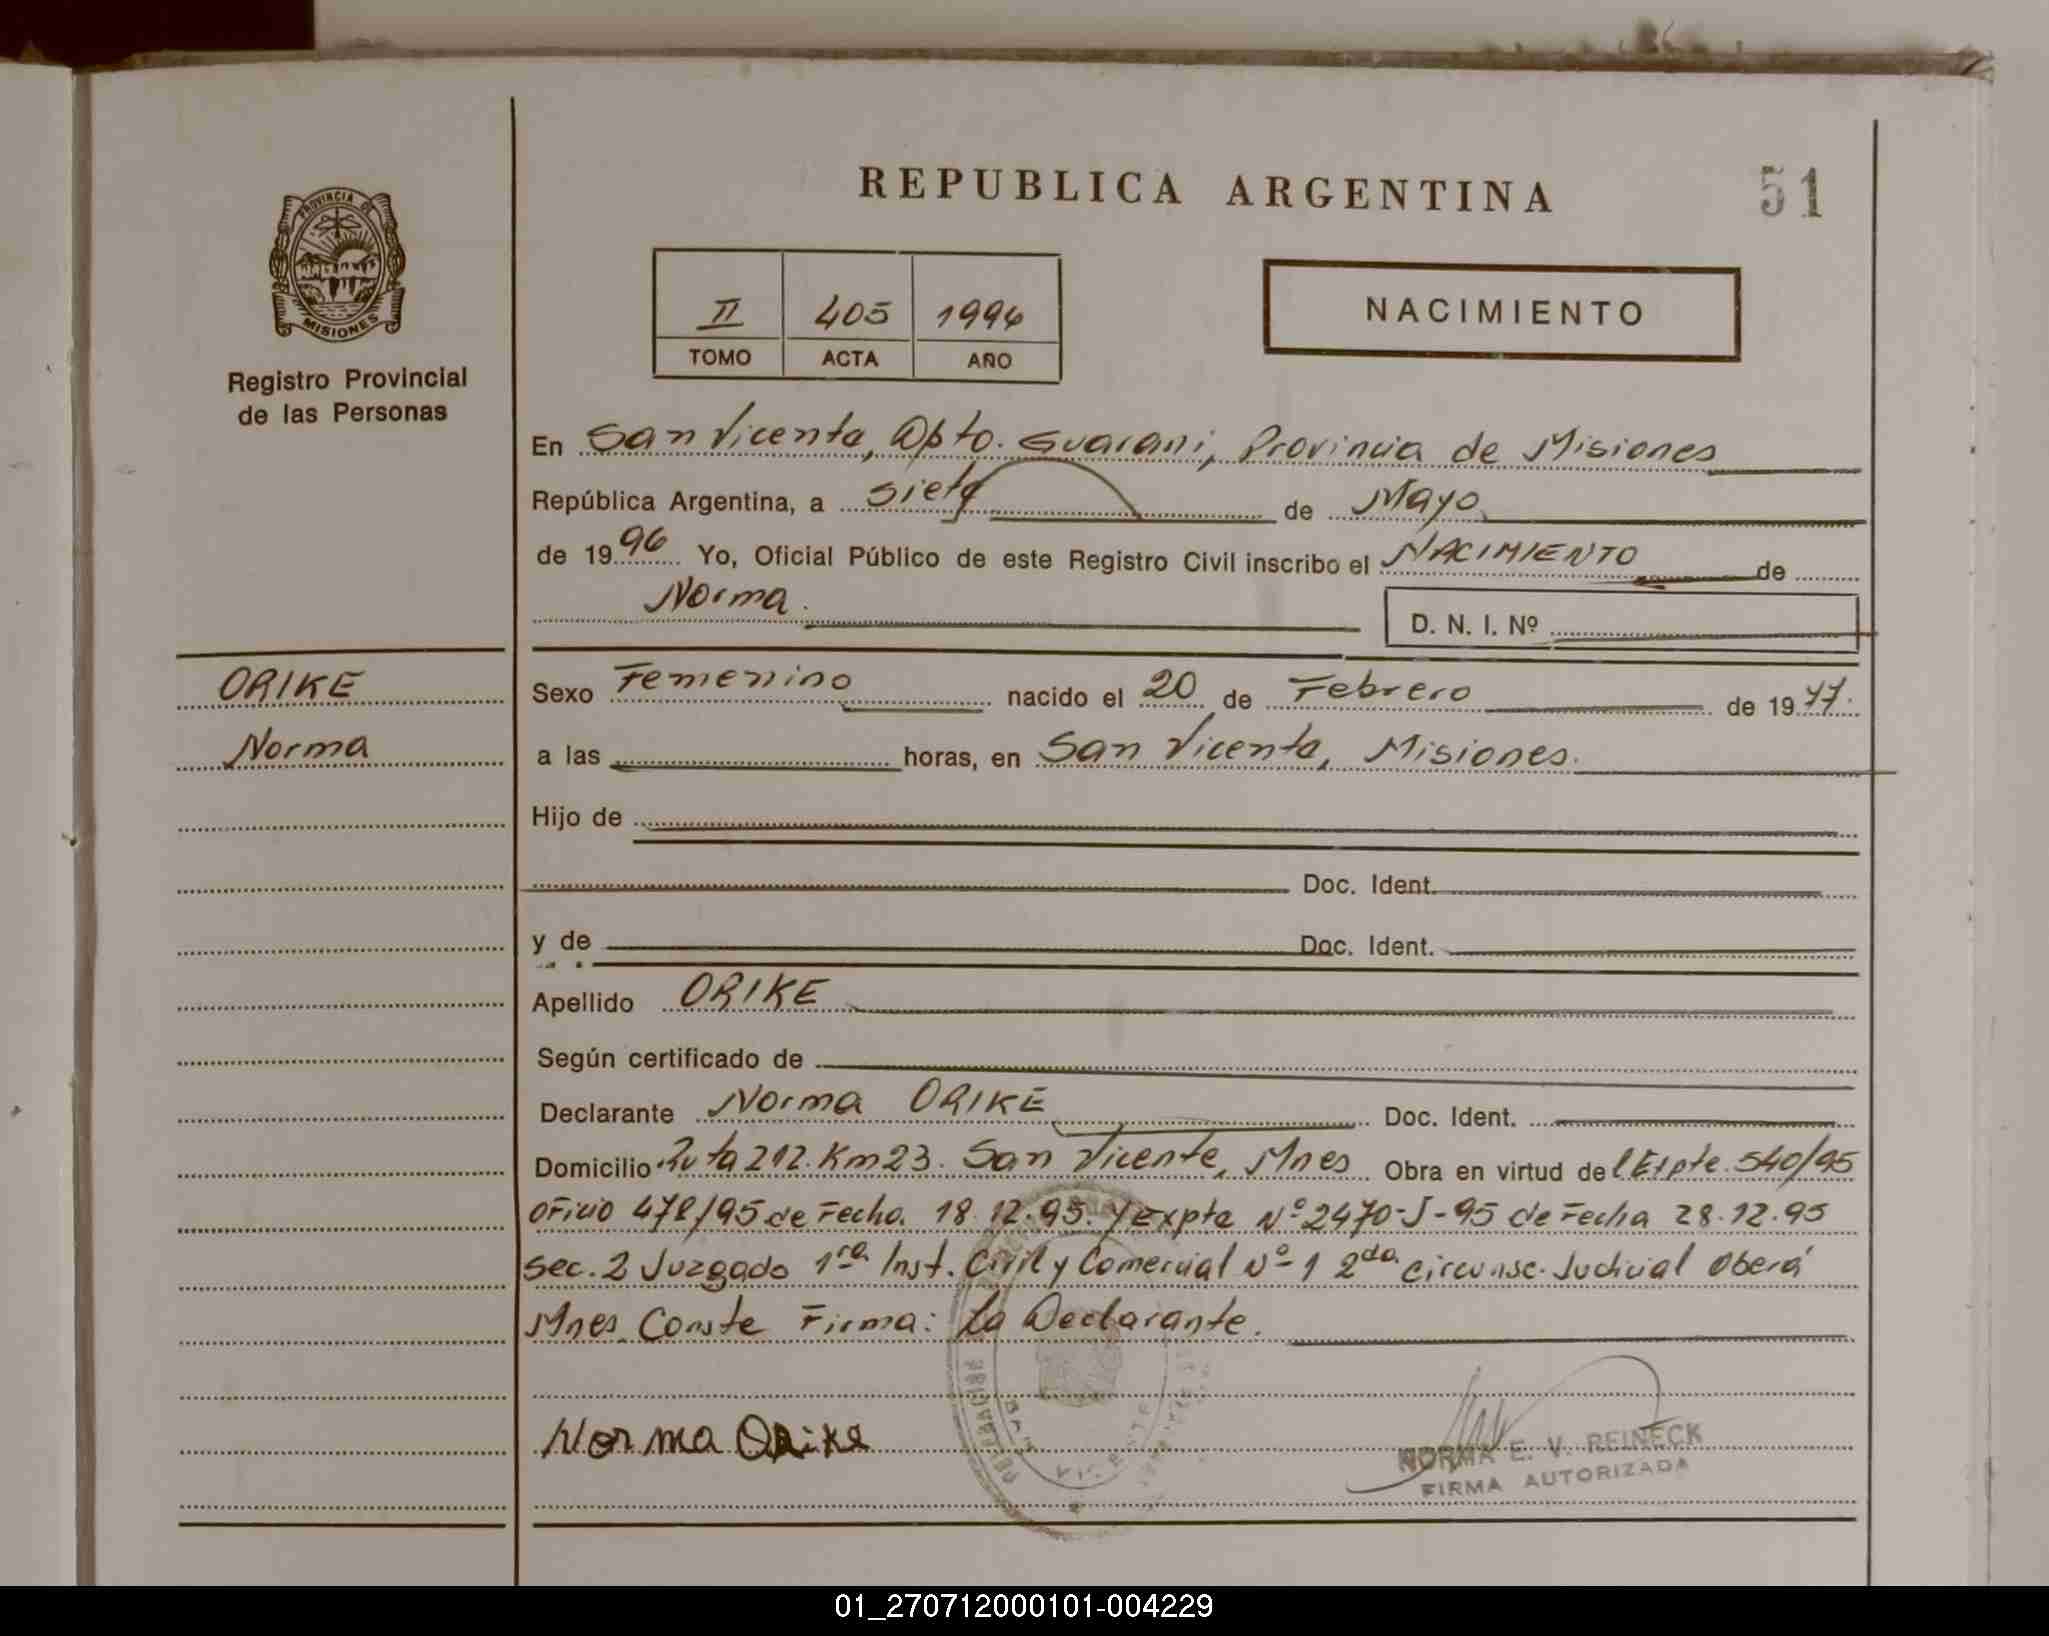 REPUBLICA ARGENTINA
51
PROVINCIA DE
MISIONES
Registro Provincial
de las Personas
II 405 1996
TOMO ACTA AÑO
NACIMIENTO
En San Vicente, Dpto. Guarani, Provincia de Misiones
República Argentina, a siete de Mayo
de 1996 Yo, Oficial Público de este Registro Civil inscribo el NACIMIENTO de
Norma.
D. N. I. Nº
ORIKE
Norma
Sexo Femenino nacido el 20 de Febrero de 1977.
a las horas, en San Vicente, Misiones.
Hijo de
Doc. Ident.
y de Doc. Ident.
Apellido ORIKE
Según certificado de
Declarante Norma ORIKE Doc. Ident.
Domicilio Ruta 212. Km 23. San Vicente, Mnes Obra en virtud del Expte. 540/95
Oficio 478/95 de Fecha. 18.12.95. y Expte Nº 2470-J-95 de Fecha 28.12.95
Sec. 2 Juzgado 1ra Inst. Civil y Comercial Nº 1 2da circunsc. Judicial Oberá
Mnes Conste Firma: La Declarante.
Norma Orike
NORMA E. V. REINECK
FIRMA AUTORIZADA
SAN VICENTE
01_270712000101-004229